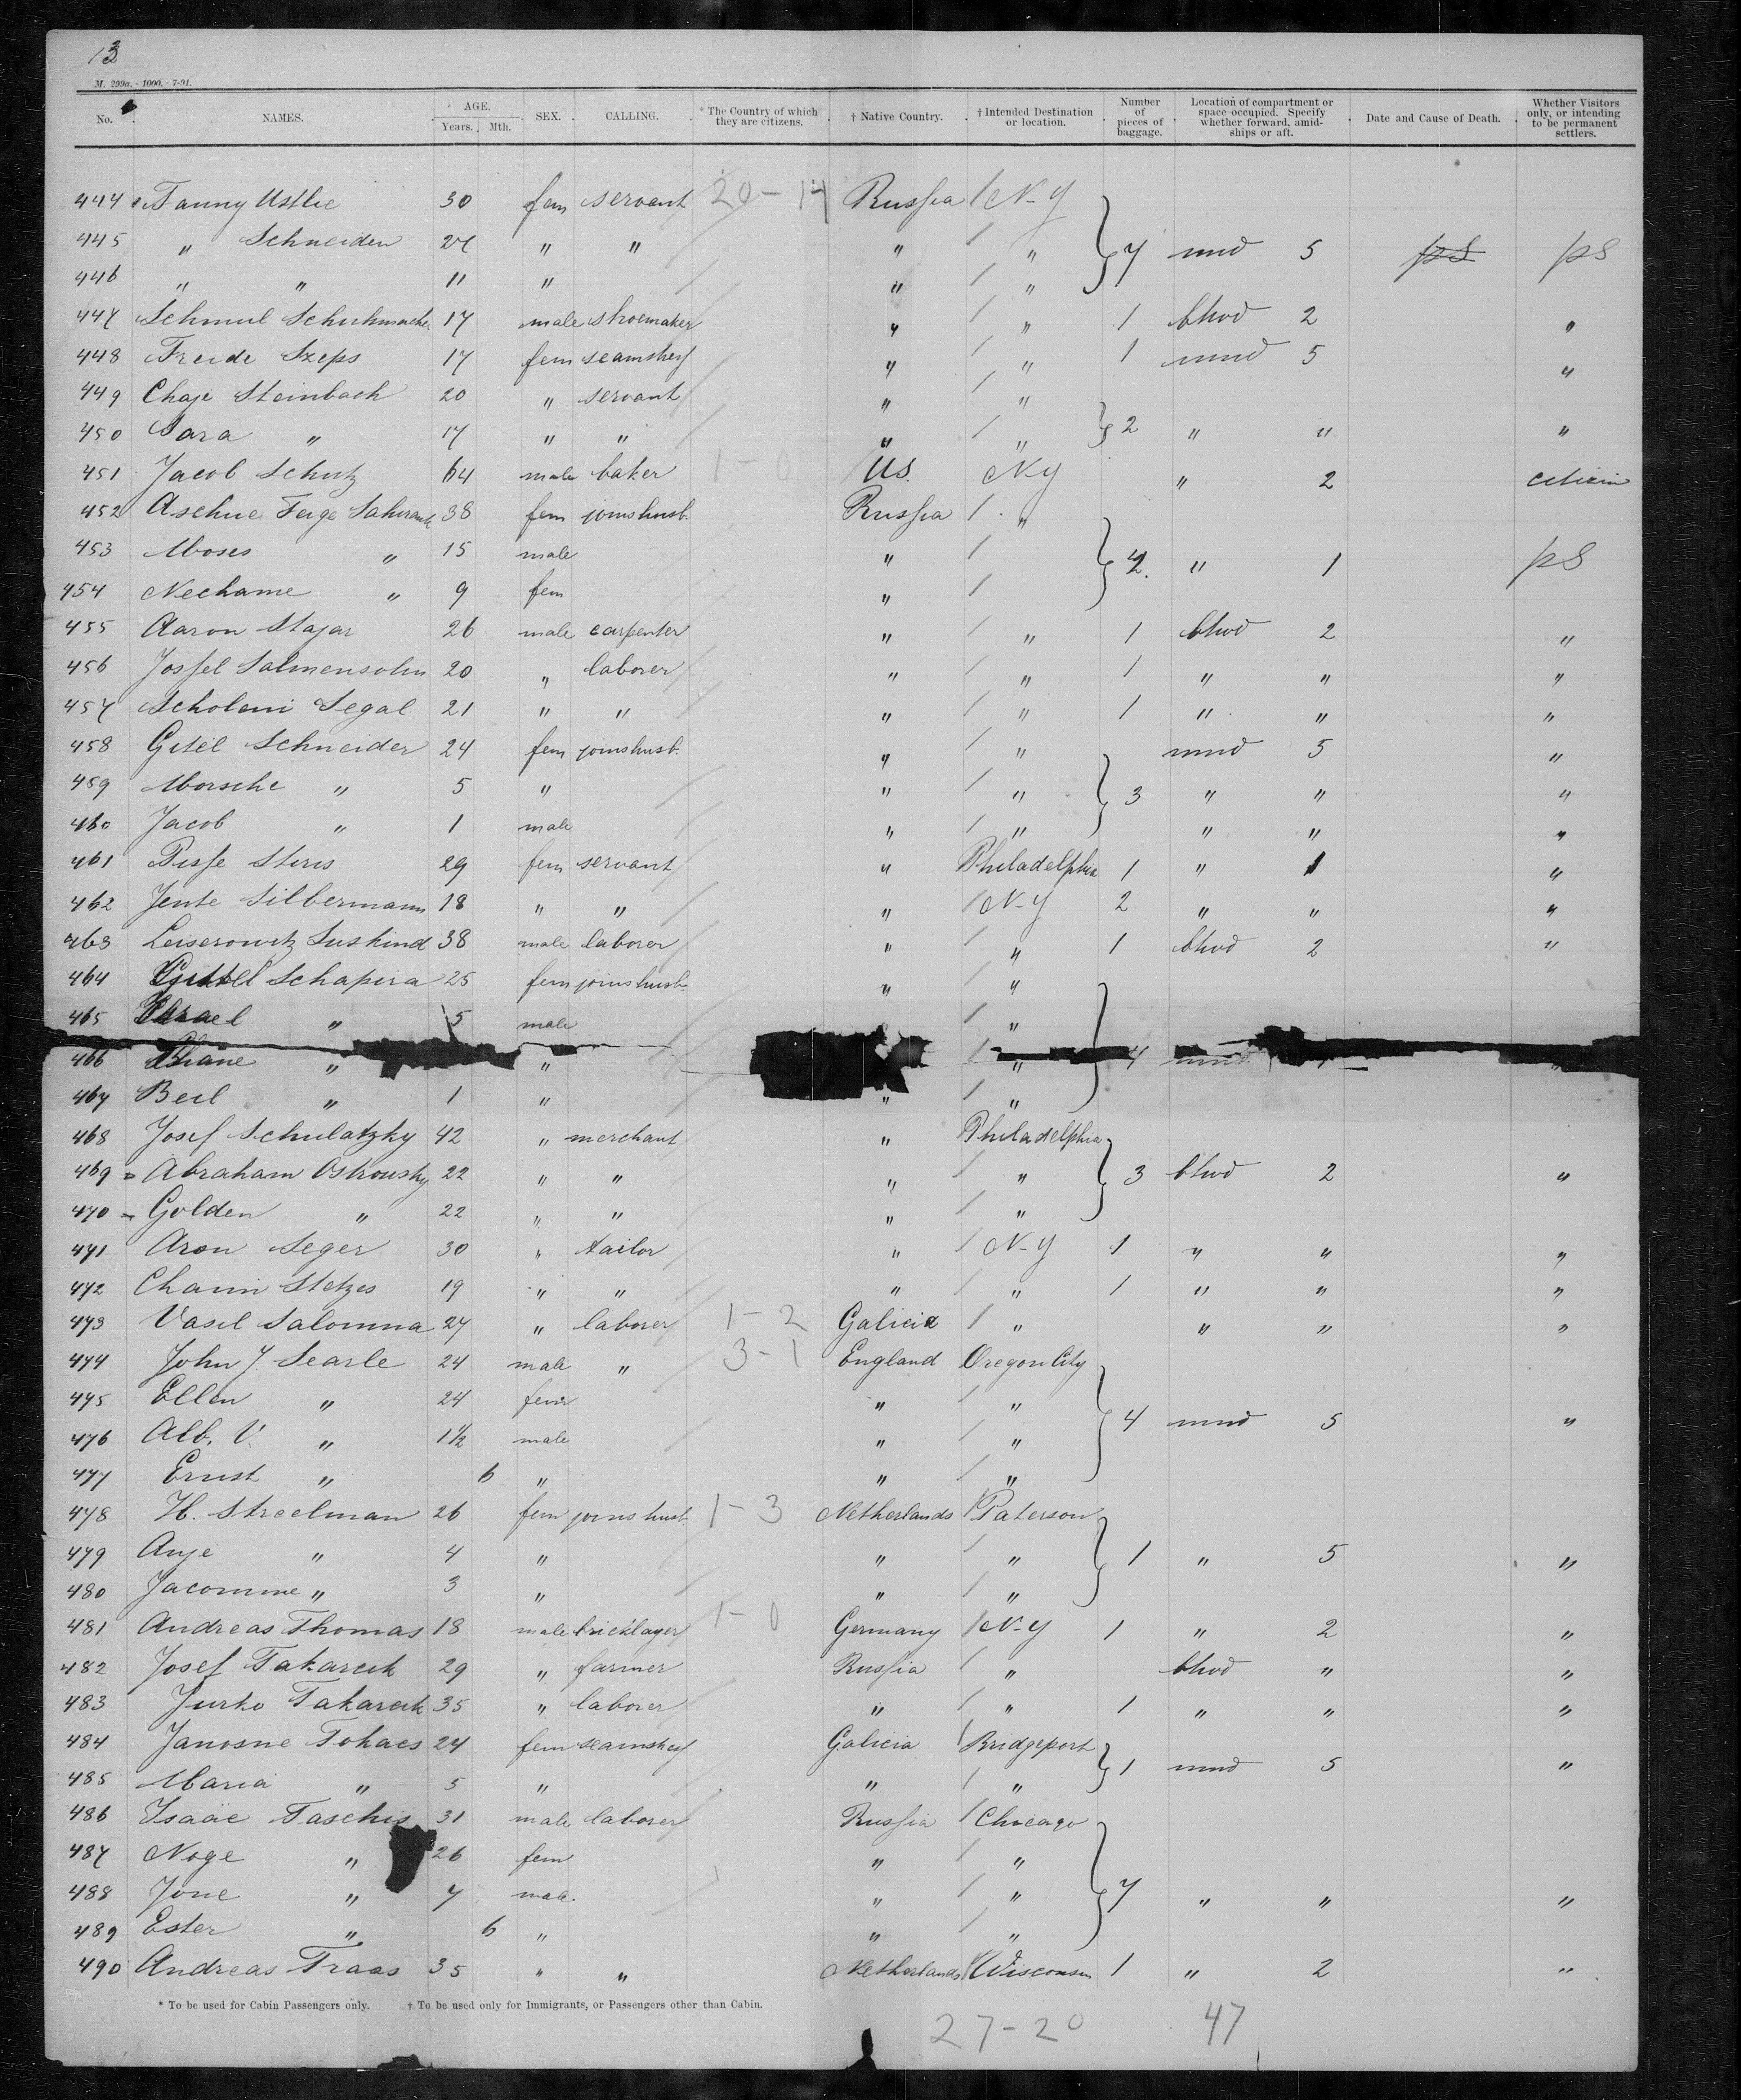 13
M. 299a. - 1000. - 7-91.
No. NAMES. AGE. Years. Mth. SEX. CALLING. * The Country of which they are citizens. † Native Country. † Intended Destination or location. Number of pieces of baggage. Location of compartment or space occupied. Specify whether forward, amidships or aft. Date and Cause of Death. Whether Visitors only, or intending to be permanent settlers.
444 Fanny Ustlie 30 fem servant 20-14 Russia / N-Y
445 " Schneider 24 " " " / " } 7 mmd 5 ps ps
446 " " 11 " " / "
447 Schmul Schuhmacher 17 male shoemaker " / " 1 bhwd 2 "
448 Freide Szeps 17 fem seamstress " / " 1 mmd 5 "
449 Chaje Steinbach 20 " servant " / "
450 Sara " 17 " " " / " } 2 " " "
451 Jacob Schutz 64 male baker 1-0 U.S. N-Y " 2 citizin
452 Aschne Feige 38 fem joins husb. Russia / "
453 Moses " 15 male " / } 4. " 1 ps
454 Nechame " 9 fem " /
455 Aaron Stajar 26 male carpenter " / " 1 bhwd 2 "
456 Jossel Salmensohn 20 " laborer " / " 1 " " "
457 Scholem Segal 21 " " " / " 1 " " "
458 Gitel Schneider 24 fem joins husb. " / " mmd 5 "
459 Morsche " 5 " " / " } 3 " " "
460 Jacob " 1 male " / " " " "
461 Pesse Steris 29 fem servant " Philadelphia 1 " 1 "
462 Jente Silbermann 18 " " " / N-Y 2 " " "
463 Leiserowitz Suskind 38 male laborer " / " 1 bhwd 2 "
464 Gittel Schapira 25 fem joins husb. " / "
465 Israel " 5 male / "
466 Chane " " / " } 4 mmd "
467 Beil " 1 " " / "
468 Josef Schulatzky 42 " merchant " Philadelphia
469 Abraham Ostrousky 22 " " " / " } 3 bhwd 2 "
470 Golden " 22 " " " / "
471 Aron Seger 30 " tailor " / N-Y 1 " " "
472 Chaim Stetzes 19 " " " / " 1 " " "
473 Vasil Salomna 27 " laborer 1-2 Galicia / " " " "
474 John J. Searle 24 male " 3-1 England Oregon City
475 Ellen " 24 fem " / " } 4 mmd 5 "
476 Alb. V. " 1½ male " / "
477 Ernst " 6 " " / "
478 H. Streelman 26 fem joins husb. 1-3 Netherlands / Paterson
479 Anje " 4 " " / " } 1 " 5 "
480 Jacomine " 3 " " / "
481 Andreas Thomas 18 male bricklayer 1-0 Germany / N-Y 1 " 2 "
482 Josef Takarcik 29 " farmer Russia / " bhwd " "
483 Jurko Takarcik 35 " laborer " / " 1 " " "
484 Janosne Tohacs 24 fem seamstress Galicia / Bridgeport
485 Maria " 5 " " / " } 1 mmd 5 "
486 Isaäc Taschis 31 male laborer Russia / Chicago
487 Noge " 26 fem " / "
488 Jone " 7 male. " / " } 7 " " "
489 Ester " 6 " " / "
490 Andreas Traas 35 " " Netherlands / Wisconsin 1 " 2 "
* To be used for Cabin Passengers only. † To be used only for Immigrants, or Passengers other than Cabin.
27-20 47